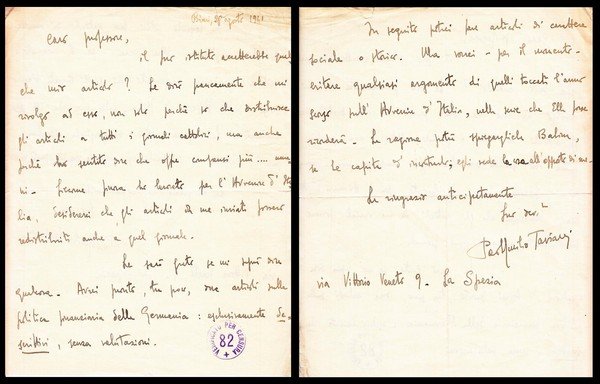 agosto 1941
Caro professore,
il suo istituto accetterebbe qual
che mio articolo? Le dirò francamente che mi
rivolgo ad esso, non solo perchè so che distribuisce
gli articoli a tutti i giornali cattolici, ma anche
perchè ho sentito dire che offre compensi più ....
ni. Siccome finora ho lavorato per l'Avvenire d'Ita
lia, desidererei che gli articoli da me inviati fossero
redistribuiti anche a quel giornale.
Le sarò grato se mi saprà dire
qualcosa. Avrei pronto, tra poco, una articoli sulla
politica finanziaria della Germania: esclusivamente de
scrittivi, senza valutazioni.
VERIFICATO PER CENSURA
82
In seguito potrei fare articoli di carattere
sociale o storico. Ma vorrei - per il momento -
evitare qualsiasi argomento di quelli toccati l'anno
scorso sull'Avvenire d'Italia, nelle serie che Ella forse
ricorderà. La ragione potrà spiegargliela
se le capita d'incontrarlo; egli siede la vea all'opposto di me.
La ringrazio anticipatamente
Suo dev.
Paolo Emilio Taviani
via Vittorio Veneto 9. La Spezia